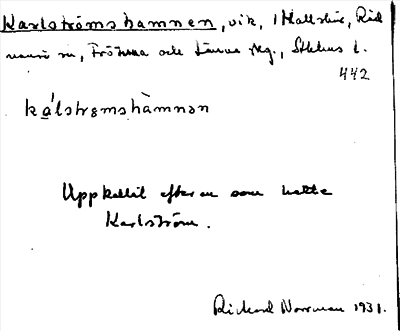 Karlströmshamnen, vik, i Hallskär, Räd
mansö sn, Frötuna och Länna skg., Sthlms l.
442
kálstrǫmshàmnən
Uppkallit efter en som hette
Karlström.
Rickard Norrman 1931.